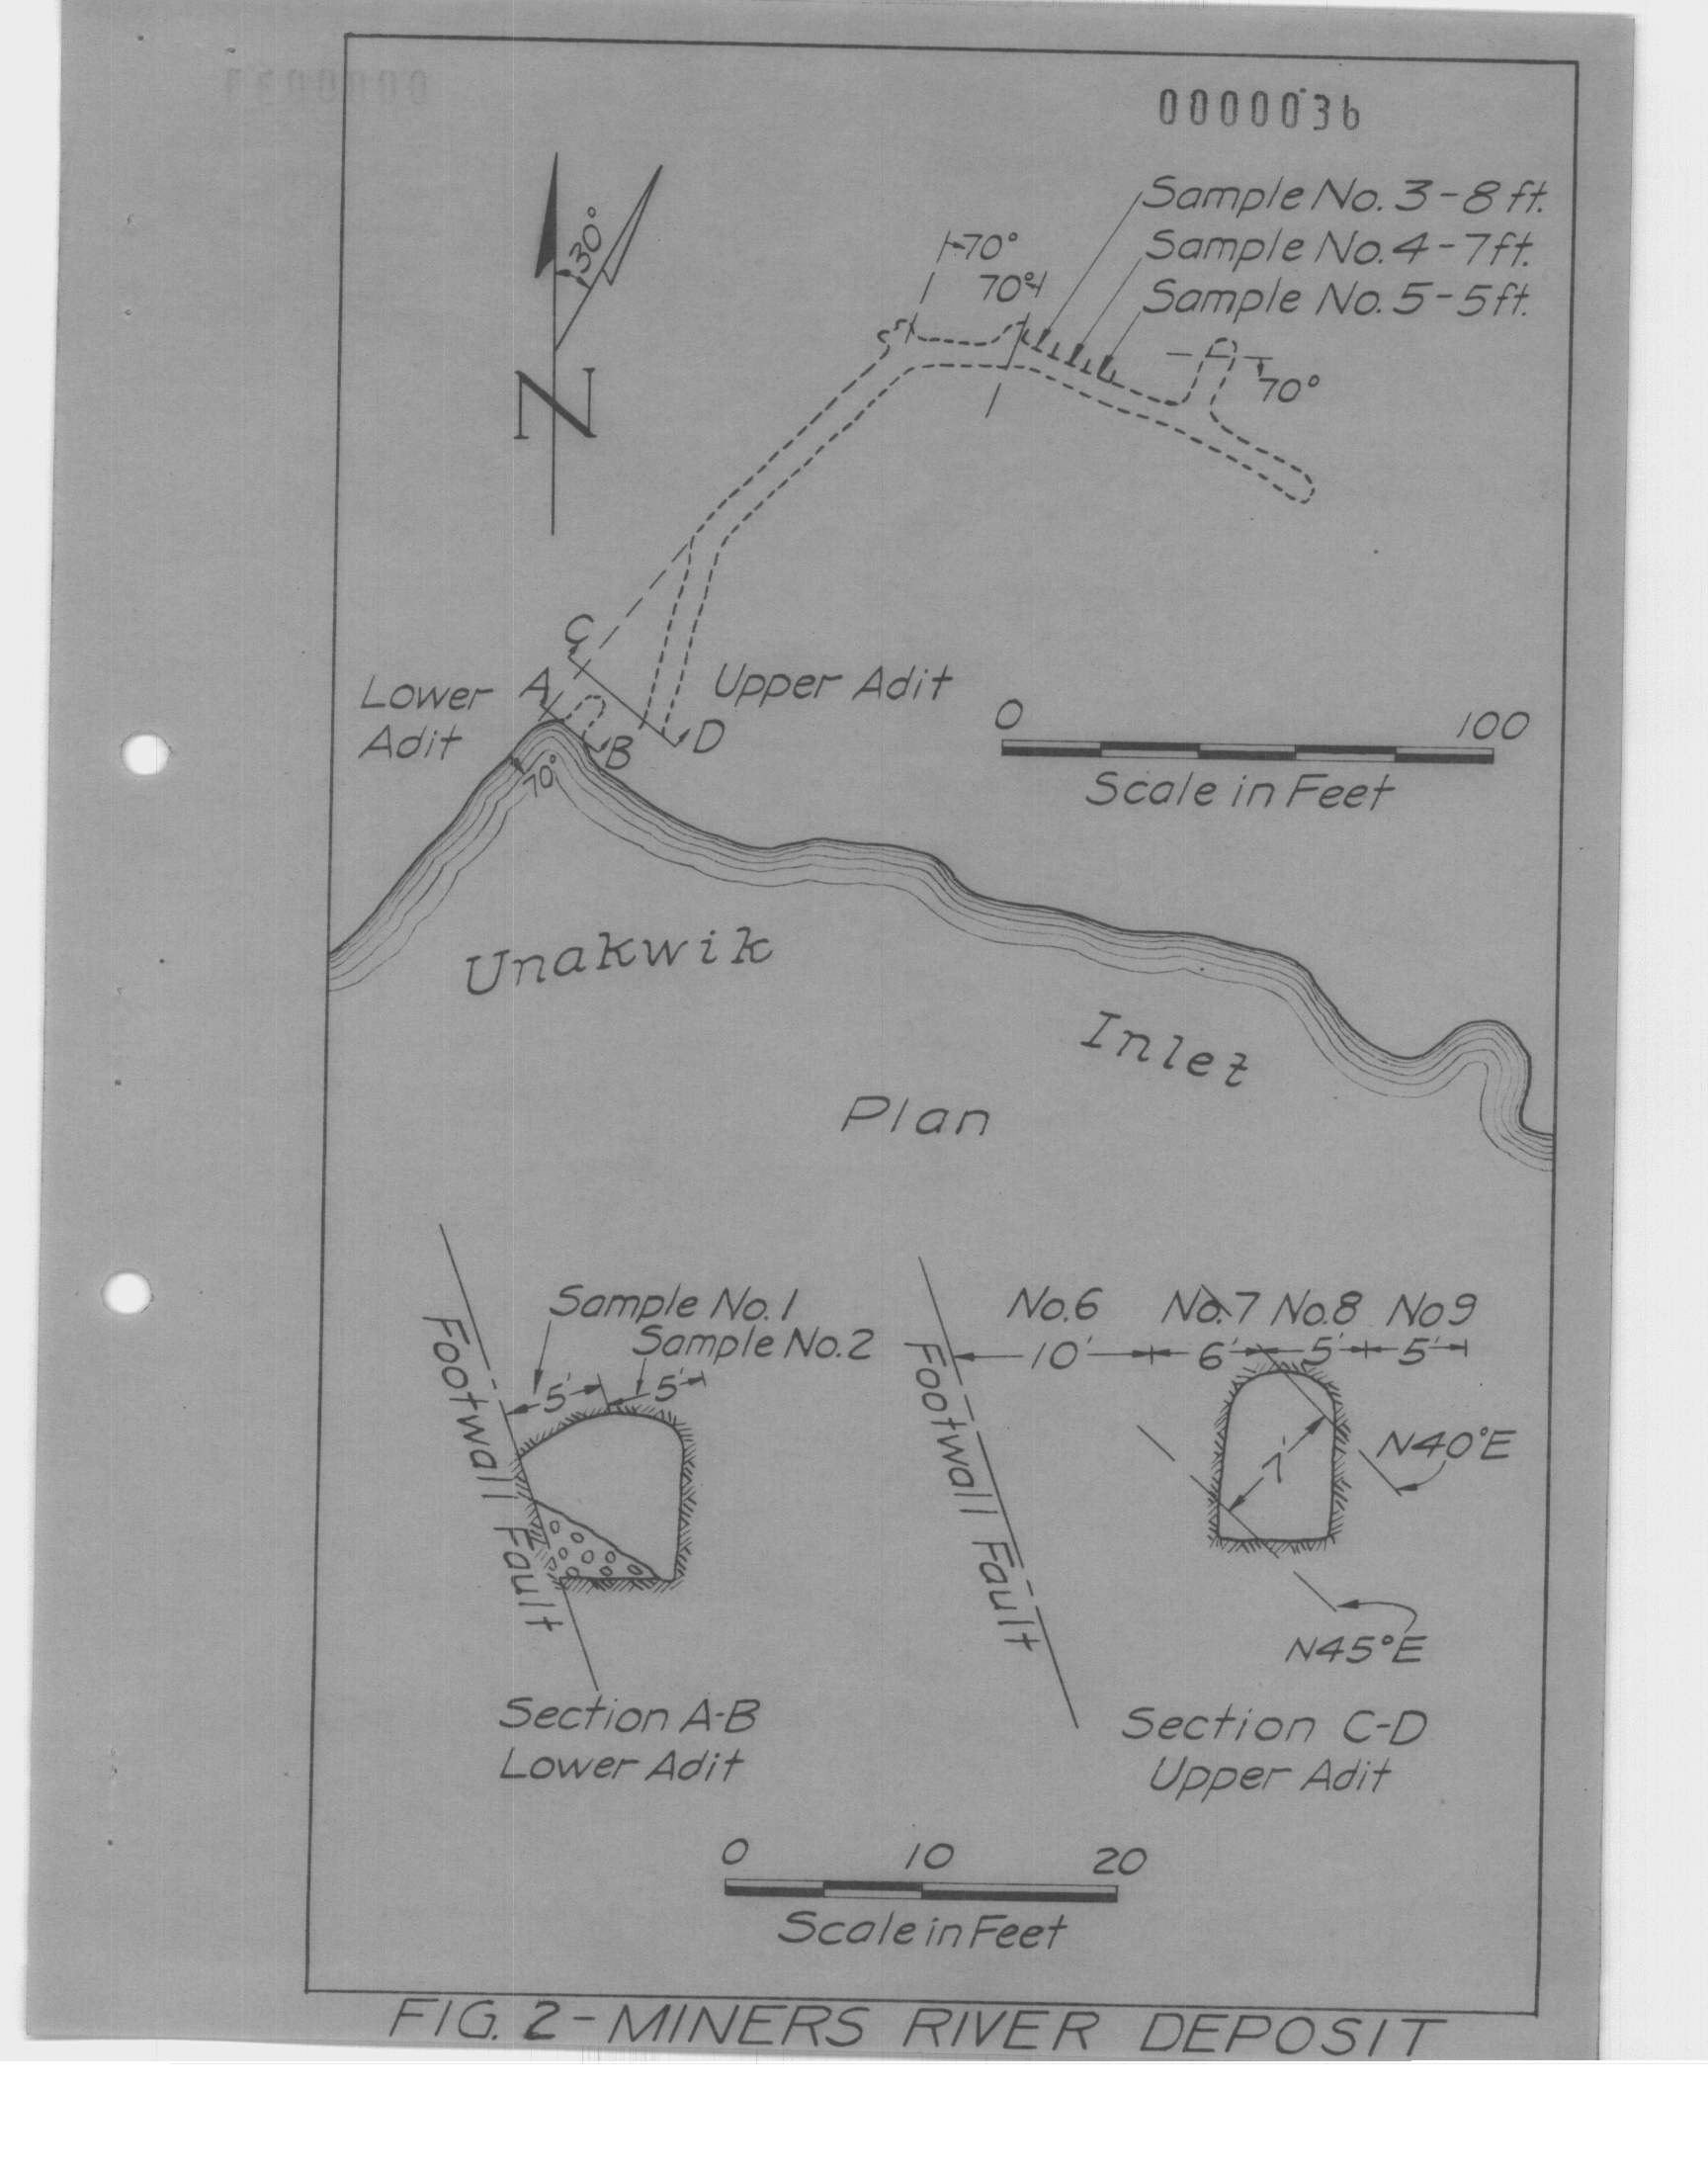 0000036
Sample No. 3-8 ft.
Sample No. 4-7 ft.
Sample No. 5-5 ft.
30°
N
70°
70°
70°
C
A
Lower
Adit
B
D
Upper Adit
70°
0 100
Scale in Feet
Unakwik
Inlet
Plan
Sample No. 1
Sample No. 2
5' 5'
Footwall Fault
Section A-B
Lower Adit
No. 6 No. 7 No. 8 No 9
10' 6' 5' 5'
Footwall Fault
7'
N40°E
N45°E
Section C-D
Upper Adit
0 10 20
Scale in Feet
FIG. 2 - MINERS RIVER DEPOSIT